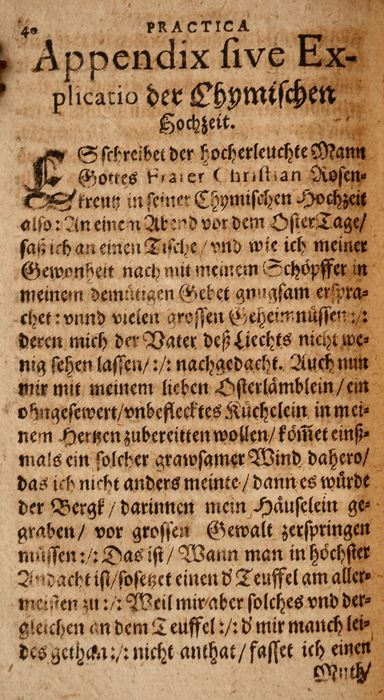 40 PRACTICA
Appendix sive Ex-
plicatio der Chymischen
Hochzeit.
ES schreibet der hocherleuchte Mann
Gottes Frater Christian Rosen-
Kreutz in seiner Chymischen Hochzeit
also: An einem Abend vor dem OsterTage/
saß ich an einen Tische/ vnd wie ich meiner
Gewonheit nach mit meinem Schöpffer in
meinem demütigen Gebet gnugsam erspra-
chet: vnnd vielen grossen Geheimnüssen:/:
deren mich der Vater deß Liechts nicht we-
nig sehen lassen/:/: nachgedacht. Auch nun
mir mit meinem lieben Osterlämblein/ ein
ohngesewert/ vnbeflecktes Küchelein in mei-
nem Hertzen zubereitten wollen/ kömet einß-
mals ein solcher grawsamer Wind dahero/
das ich nicht anders meinte/ dann es würde
der Bergk/ darinnen mein Häuselein ge-
graben/ vor grossen Gewalt zerspringen
müssen:/: Das ist/ Wann man in höchster
Andacht ist/ sosetzet einen d' Teuffel am aller-
meisten zu:/: Weil mir aber solches vnd der-
gleichen an dem Teuffel:/: d' mir manch lei-
des gethan:/: nicht anthat/ fasset ich einen
Muth/